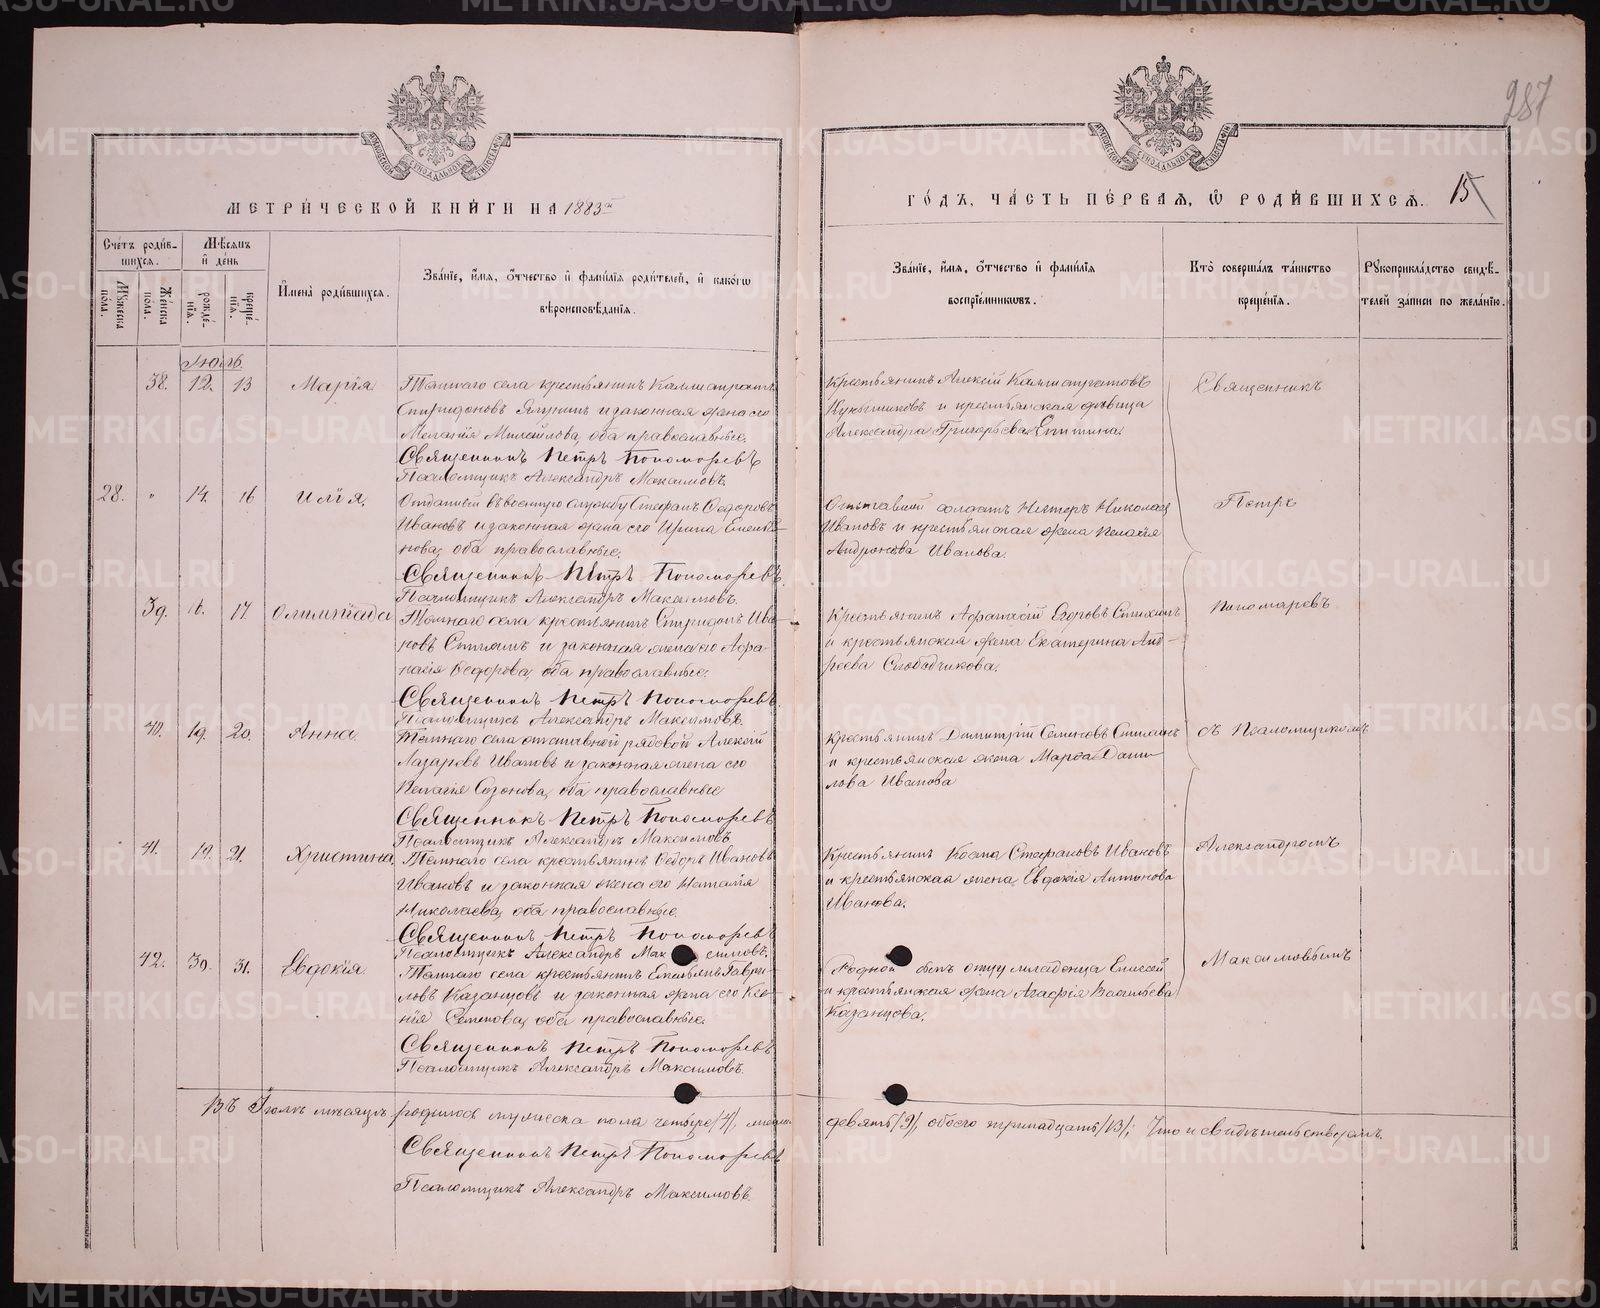 287
МЕТРИЧЕСКОЙ КНИГИ НА 1883й
ГОДЪ, ЧАСТЬ ПЕРВАЯ, Ѡ РОДИВШИХСЯ. 15
Счетъ родившихся.
Мѣсяцъ и день
Мужеска пола.
Женска пола.
рожденїя.
крещенїя.
Имена родившихся.
Званїе, имя, отчество и фамилїя родителей, и какогѡ
вѣроисповѣданїя.
Званїе, имя, отчество и фамилїя
воспрїемниковъ.
Кто совершалъ таинство
крещенїя.
Рукоприкладство свидѣтелей записи по желанїю.
Іюль.
38. 12. 13 Марія
Темнаго села крестьянинъ Каллистратъ
Спиридоновъ и законная жена его
Меланія оба православные.
Священникъ Петръ Пономоревъ
Псаломщикъ Александръ Максимовъ.
Крестьянинъ Алексій Каллистратовъ
и крестьянская дѣвица
Александра Григорьева
Священникъ
28. " 14. 16 Илія.
Отданный въ военную службу Стефанъ Ѳедоровъ
Ивановъ и законная жена его Ирина
оба православные.
Священникъ Петръ Пономоревъ
Псаломщикъ Александръ Максимовъ.
солдатъ Несторъ Николаевъ
Ивановъ и крестьянская жена Пелагія
Андронова Иванова.
Петръ
39. 16. 17. Олимпіада
Темнаго села крестьянинъ Спиридонъ Ивановъ
и законная жена его
Ѳедорова, оба православные.
Священникъ Петръ Пономоревъ
Псаломщикъ Александръ Максимовъ.
Крестьянинъ Афанасій Егоровъ
и крестьянская жена Екатерина Андреева
Слободчикова.
Пономаревъ
40. 19. 20. Анна
Темнаго села отставной рядовой Алексій
Лазаревъ Ивановъ и законная жена его
Пелагія Созонова, оба православные
Священникъ Петръ Пономоревъ
Псаломщикъ Александръ Максимовъ.
Крестьянинъ Димитрій Семеновъ
и крестьянская жена Марѳа Данилова
Иванова
съ Псаломщикомъ
41. 19. 21. Христина
Темнаго села крестьянинъ Ѳедоръ Ивановъ
Ивановъ и законная жена его Наталія
Николаева, оба православные.
Священникъ Петръ Пономоревъ
Псаломщикъ Александръ Максимовъ.
Крестьянинъ Косма Стефановъ Ивановъ
и крестьянская жена Евдокія Антонова
Иванова.
Александромъ
42. 30. 31. Евдокія
Темнаго села крестьянинъ Емельянъ Гавриловъ
Казанцовъ и законная жена его Ксенія
Семенова, оба православные.
Священникъ Петръ Пономоревъ
Псаломщикъ Александръ Максимовъ.
Родной отцу младенца Елисей
и крестьянская жена Агафія Васильева
Казанцова.
Максимовымъ
Въ Іюлѣ мѣсяцѣ родилось мужеска пола четыре /4/, женска девять /9/, обоего тринадцать /13/; Что и свидѣтельствуемъ.
Священникъ Петръ Пономоревъ
Псаломщикъ Александръ Максимовъ.
METRIKI.GASO-URAL.RU